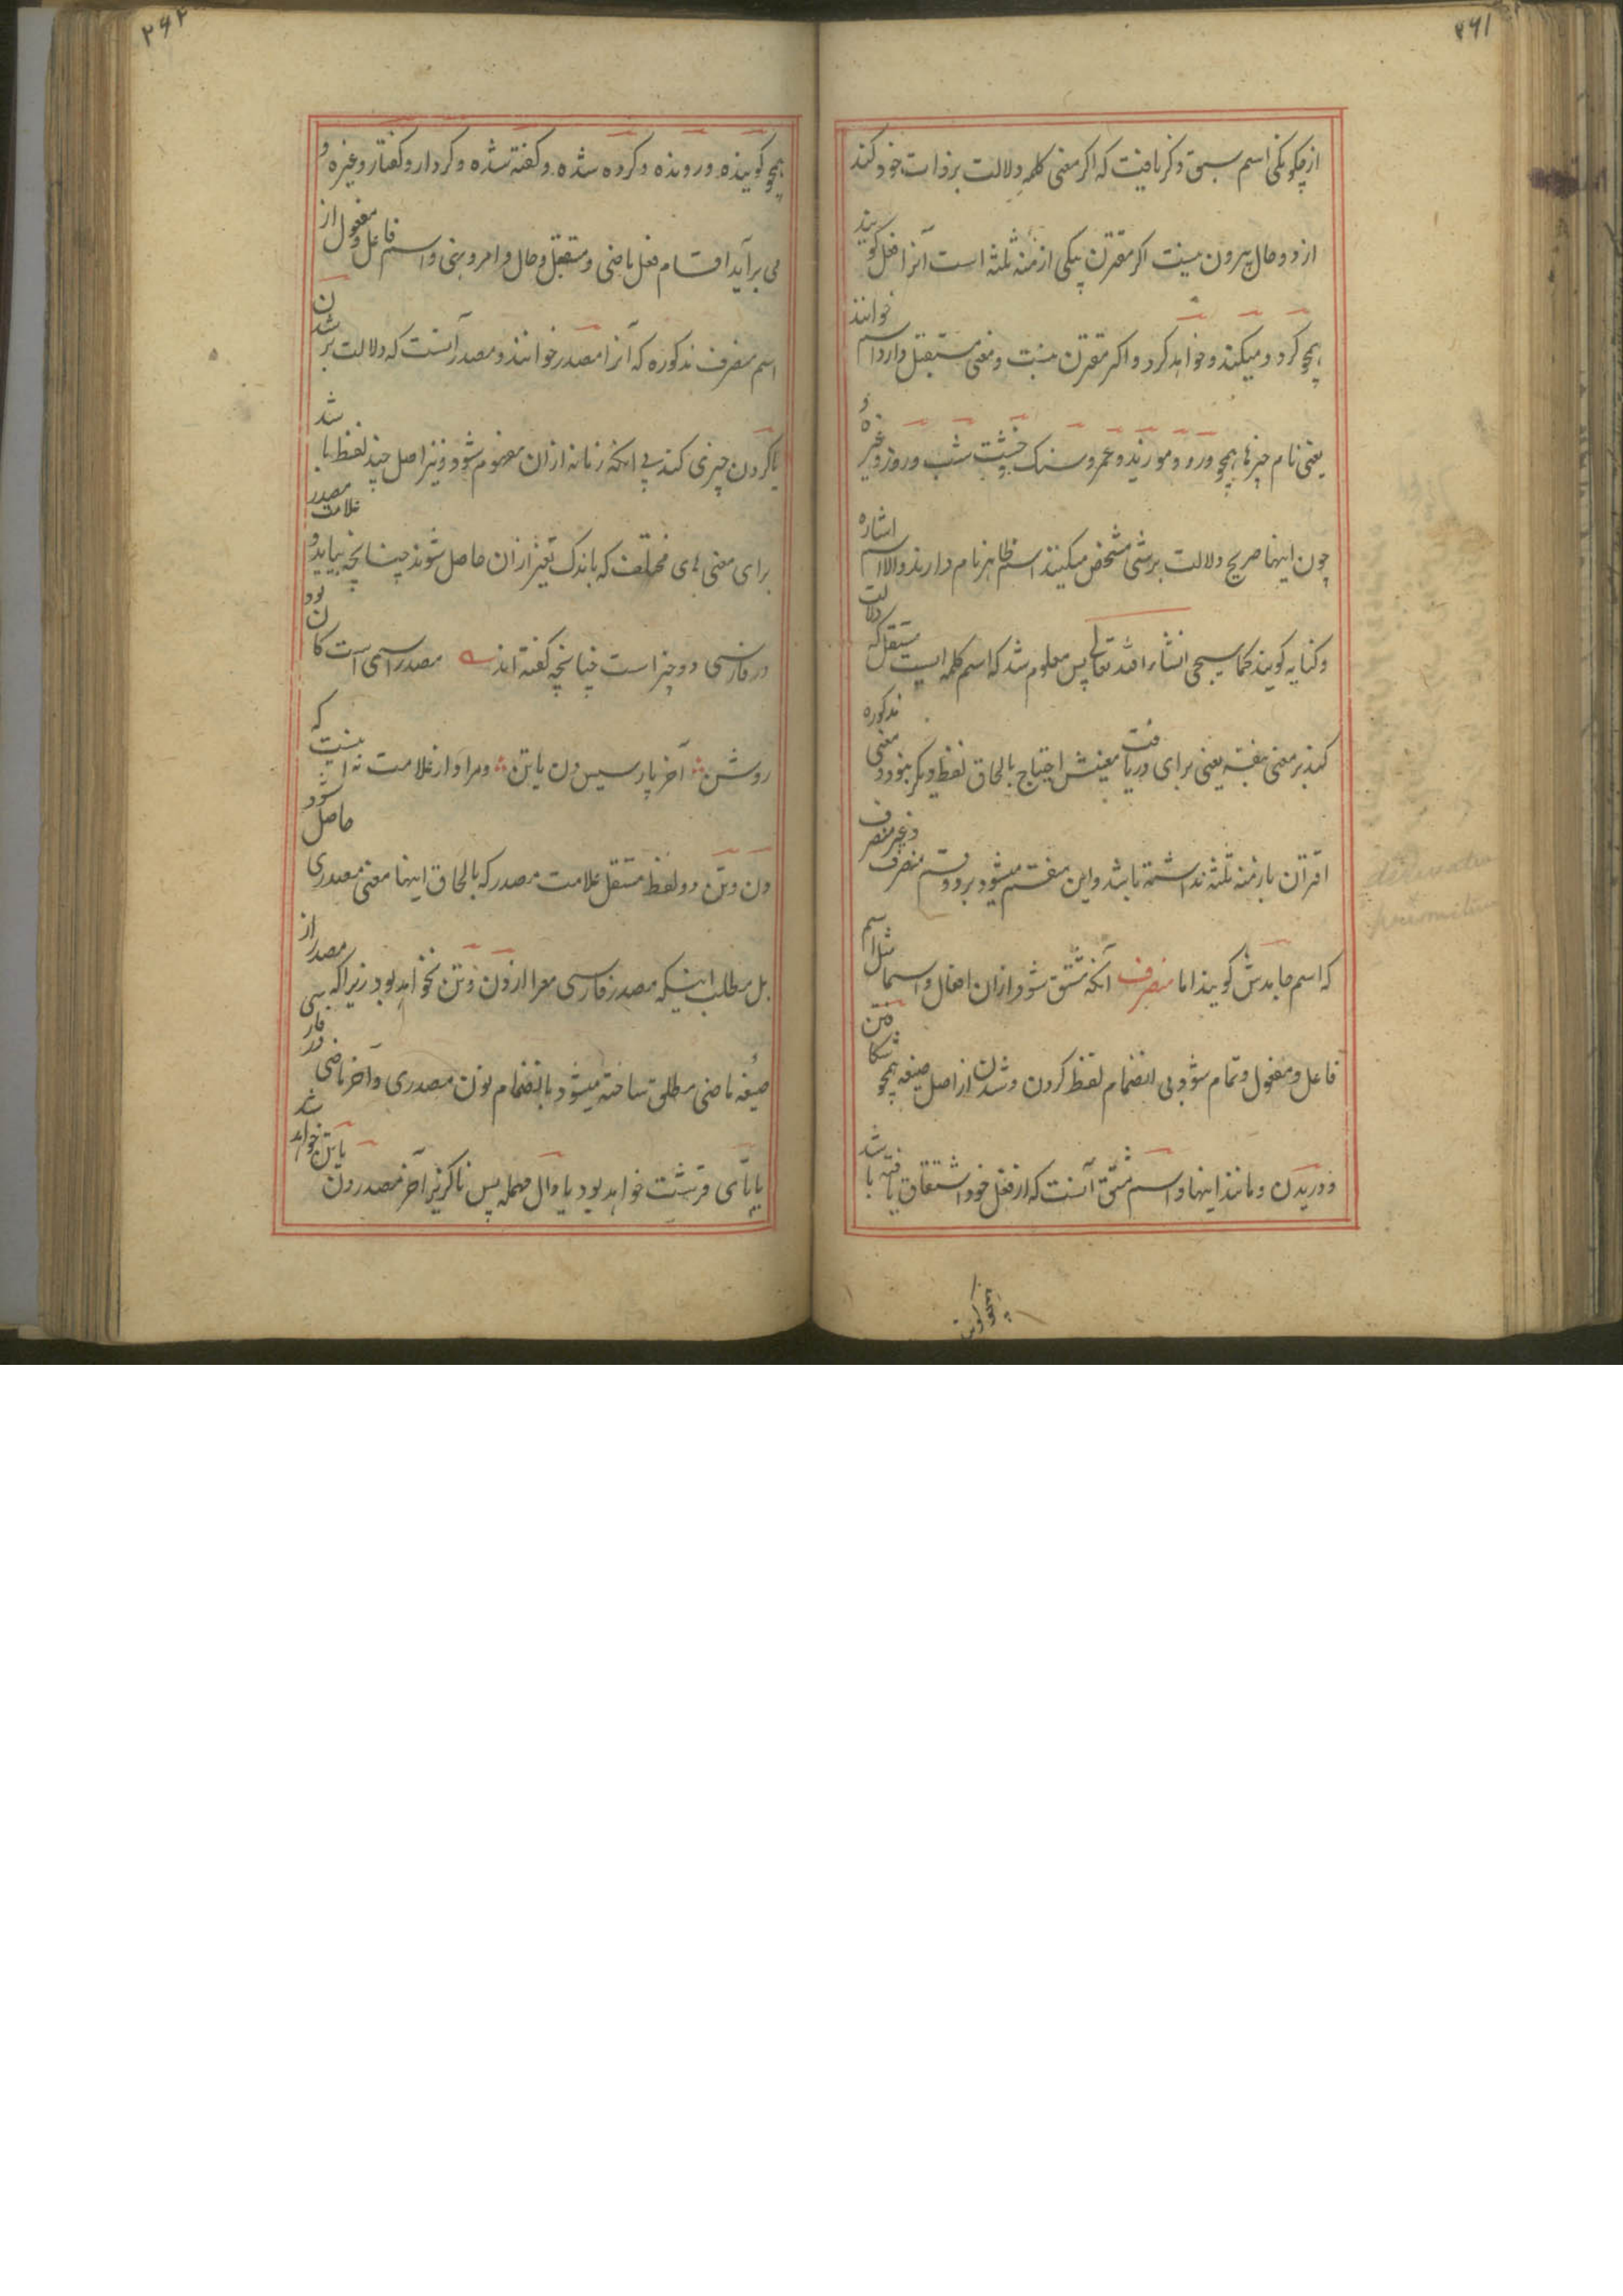 ۲۶۱
از چکونکی اسم سبق ذکر یافت که اکر معنی کلمه دلالت بر ذات خود کند
از دو حال بیرون نیست اکر مقترن بیکی ازمنه ثلثه است آنرا فعل کویند
همچو کرد و میکند و خواهد کرد و اکر مقترن نیست و معنی مستقل دارد اسم خوانند
یعنی نام چیزها همچو و زید و عمرو سنک خشت شب و روز و غیره
چون اینها صریح دلالت بر شی مشخص میکنند اسم ظاهر نام دارند و الا اسم اشاره
و کنایه کویند کما سیجی انشاء الله تعالی پس معلوم شد که اسم کلمه ایست مستقل که دلالت
کند بر معنی بنفسه یعنی برای دریافت معنیش احتیاج بالحاق لفظ دیکر نبود و معنی مذکوره
اقتران بازمنه ثلثه نداشته باشد و این منقسم میشود بر دو قسم منصرف و غیر منصرف
که اسم جامدش کویند اما منصرف آنکه مشتق شود ازان افعال و اسما مثل اسم
فاعل و مفعول و تمام شود بی انضمام لفظ کردن و شدن از اصل صیغه همچو شکافتن
و دریدن و مانند اینها و اسم مشتق آنست که از فعل خود اشتقاق یافته باشد
همچو کوینده
۲۶۲
همچو کوینده و رونده و کرده شده و کفته شده و کردار و کفتار و غیره و
می برآید اقسام فعل ماضی و مستقبل و حال و امر و نهی و اسم فاعل و مفعول از
اسم منصرف مذکوره که آنرا مصدر خوانند و مصدر آنست که دلالت بر شدن
یا کردن چیزی کند بی آنکه زمانه ازان مفهوم شود و نیز اصل چند لفظ باشد
برای معنی های مختلف که باندک تغیر ازان حاصل شوند چنانچه بیاید و علامت مصدر
در فارسی دو چیز است چنانچه کفته اند مصدر اسمی است کان بود
روشن آخر پارسیش دن یا تن و مراد از علامت نه اینست که
دن و تن دو لفظ مستقل علامت مصدر که بالحاق اینها معنی مصدری حاصل شود
بل مطلب اینکه مصدر فارسی معرا از دن و تن نخواهد بود زیراکه مصدر از
صیغه ماضی مطلق ساخته میشود بانضمام نون مصدری و آخر ماضی در فارسی
یا تای قرشت خواهد بود یا دال مهمله پس ناکزیر آخر مصدر دن یا تن خواهد شد